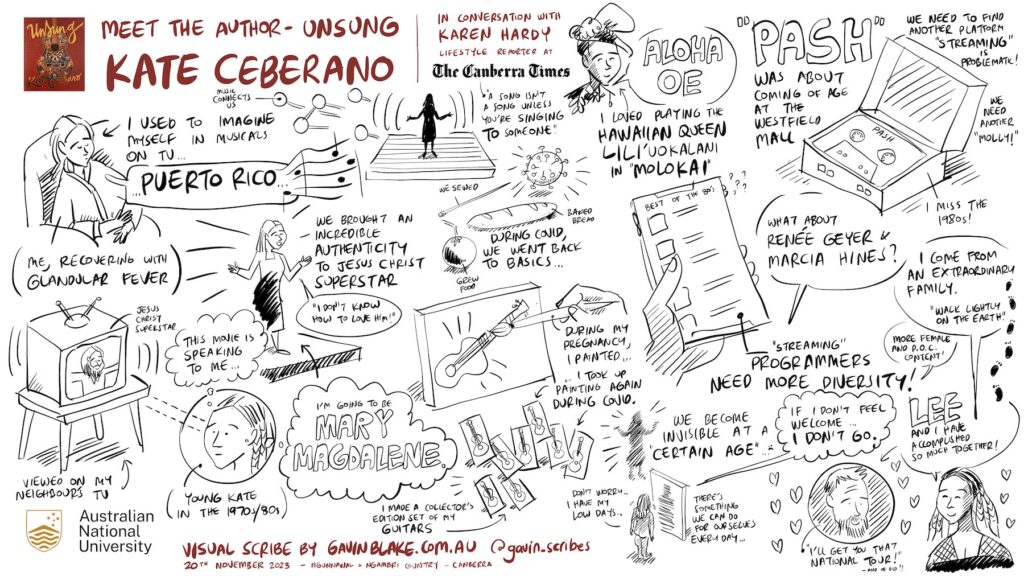 Unsung
MEET THE AUTHOR - UNSUNG
KATE CEBERANO
IN CONVERSATION WITH
KAREN HARDY
LIFESTYLE REPORTER AT
The Canberra Times
I USED TO IMAGINE
MYSELF IN MUSICALS
ON TV...
PUERTO RICO...
MUSIC
CONNECTS
US
"A SONG ISN'T
A SONG UNLESS
YOU'RE SINGING
TO SOMEONE"
ME, RECOVERING WITH
GLANDULAR FEVER
JESUS
CHRIST
SUPERSTAR
THIS MOVIE IS
SPEAKING
TO ME...
VIEWED ON MY
NEIGHBOURS TV
YOUNG KATE
IN THE 1970s/80s
WE BROUGHT AN
INCREDIBLE
AUTHENTICITY
TO JESUS CHRIST
SUPERSTAR
"I DON'T KNOW
HOW TO LOVE HIM!"
I'M GOING TO BE
MARY
MAGDALENE.
WE SEWED
BAKED
BREAD
GREW
FOOD
DURING COVID,
WE WENT BACK
TO BASICS...
DURING MY
PREGNANCY,
I PAINTED...
... I TOOK UP
PAINTING AGAIN
DURING COVID.
I MADE A COLLECTOR'S
EDITION SET OF MY
GUITARS
ALOHA
OE
I LOVED PLAYING THE
HAWAIIAN QUEEN
LILI'UOKALANI
IN "MOLOKAI"
"PASH"
WAS ABOUT
COMING OF AGE
AT THE
WESTFIELD
MALL
PASH
WE NEED TO FIND
ANOTHER PLATFORM
"STREAMING"
IS
PROBLEMATIC!
WE
NEED
ANOTHER
"MOLLY!"
I MISS THE
1980s!
BEST OF THE 80'S
????
WHAT ABOUT
RENÉE GEYER &
MARCIA HINES?
"STREAMING"
PROGRAMMERS
NEED MORE DIVERSITY!
MORE FEMALE
AND P.O.C.
CONTENT!
I COME FROM
AN EXTRAORDINARY
FAMILY.
"WALK LIGHTLY
ON THE EARTH."
WE BECOME
INVISIBLE AT A
"CERTAIN AGE"...
IF I DON'T FEEL
WELCOME...
I DON'T GO.
DON'T WORRY...
I HAVE MY
LOW DAYS...
THERE'S
SOMETHING
WE CAN DO
FOR OURSELVES
EVERY DAY...
LEE
AND I HAVE
ACCOMPLISHED
SO MUCH TOGETHER!
"I'LL GET YOU THAT
NATIONAL TOUR!"
- AND HE DID!!
Australian
National
University
VISUAL SCRIBE BY GAVINBLAKE.COM.AU @gavin_scribes
20TH NOVEMBER 2023 - NGUNNAWAL & NGAMBRI COUNTRY - CANBERRA